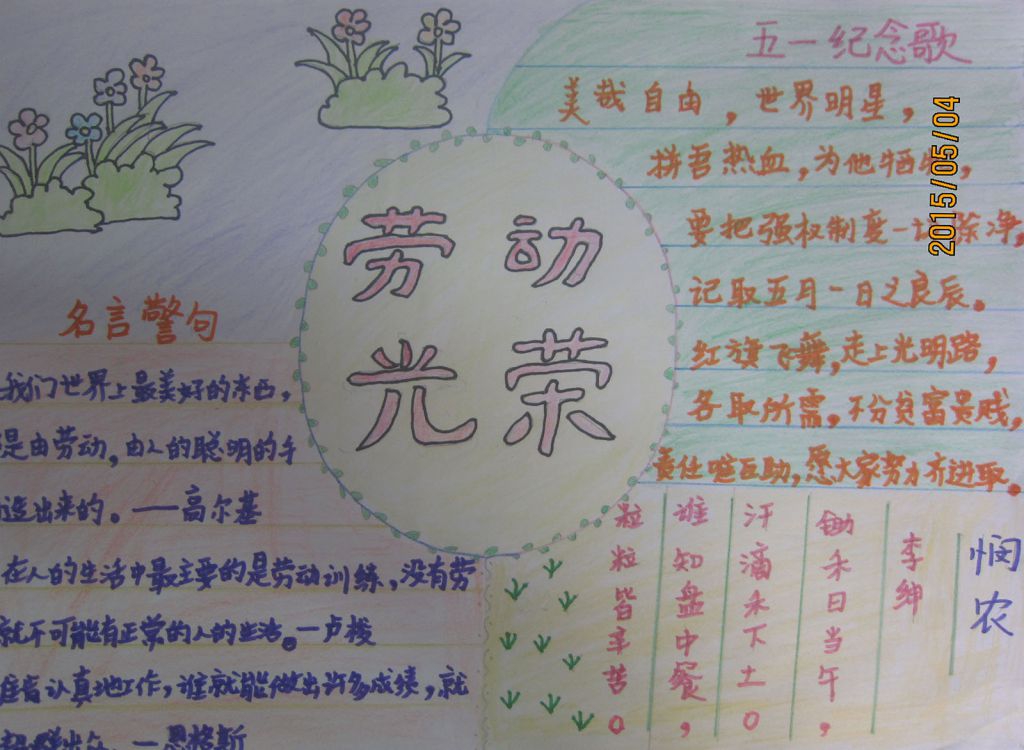 劳动
光荣
五一纪念歌
美哉自由，世界明星，
拼吾热血，为他牺牲，
要把强权制度一切除净，
记取五月一日之良辰。
红旗飞舞，走上光明路，
各取所需，不分贫富贵贱，
责任唯互助，愿大家努力齐进取。
2015/05/04
名言警句
我们世界上最美好的东西，
是由劳动，由人的聪明的手
造出来的。——高尔基
在人的生活中最主要的是劳动训练，没有劳
就不可能有正常的人的生活。—卢梭
谁肯认真地工作，谁就能做出许多成绩，就
—恩格斯
悯农
李绅
锄禾日当午，
汗滴禾下土。
谁知盘中餐，
粒粒皆辛苦。